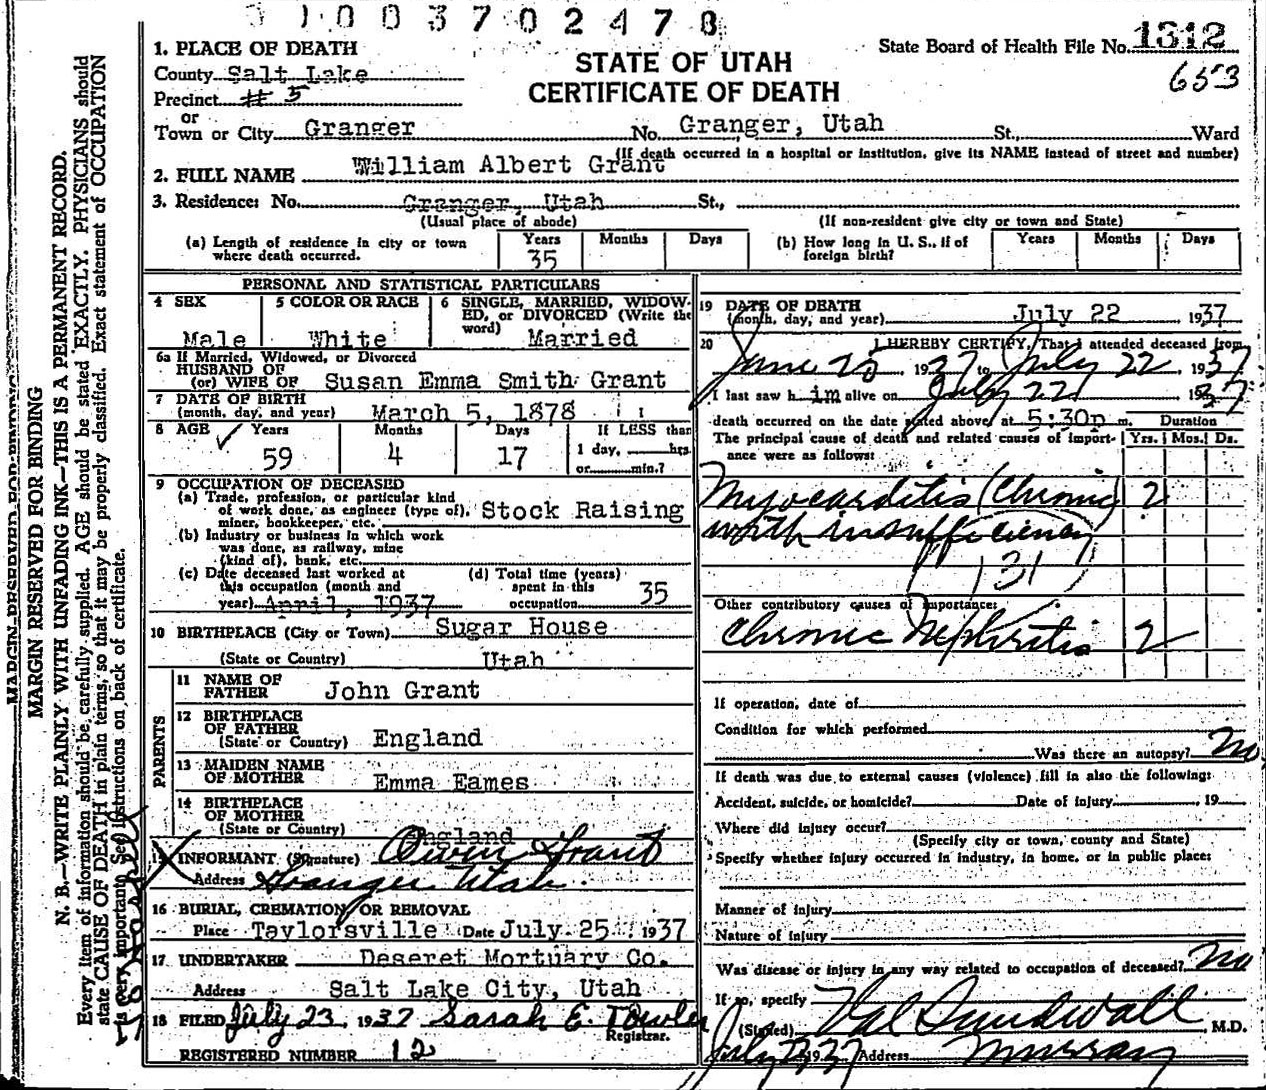 31003702478
State Board of Health File No. 1312
653
STATE OF UTAH
CERTIFICATE OF DEATH
1. PLACE OF DEATH
County Salt Lake
Precinct # 5
or
Town or City Granger No. Granger, Utah St., Ward
(If death occurred in a hospital or institution, give its NAME instead of street and number)
2. FULL NAME William Albert Grant
3. Residence: No. Granger, Utah St.,
(Usual place of abode) (If non-resident give city or town and State)
(a) Length of residence in city or town where death occurred. Years 35 Months Days
(b) How long in U. S., if of foreign birth? Years Months Days
PERSONAL AND STATISTICAL PARTICULARS
4 SEX Male
5 COLOR OR RACE White
6 SINGLE, MARRIED, WIDOWED, or DIVORCED (Write the word) Married
6a If Married, Widowed, or Divorced
HUSBAND OF
(or) WIFE OF Susan Emma Smith Grant
7 DATE OF BIRTH
(month, day, and year) March 5, 1878
8 AGE Years 59 Months 4 Days 17 If LESS than 1 day, hrs. or min.?
9 OCCUPATION OF DECEASED
(a) Trade, profession, or particular kind
of work done, as engineer (type of), Stock Raising
miner, bookkeeper, etc.
(b) Industry or business in which work
was done, as railway, mine
(kind of), bank, etc.
(c) Date deceased last worked at
this occupation (month and
year) April, 1937
(d) Total time (years)
spent in this
occupation 35
10 BIRTHPLACE (City or Town) Sugar House
(State or Country) Utah
PARENTS
11 NAME OF
FATHER John Grant
12 BIRTHPLACE
OF FATHER
(State or Country) England
13 MAIDEN NAME
OF MOTHER Emma Eames
14 BIRTHPLACE
OF MOTHER
(State or Country) England
15 INFORMANT (Signature) Owen Grant
Address Granger Utah
16 BURIAL, CREMATION, OR REMOVAL
Place Taylorsville Date July 25 1937
17 UNDERTAKER Deseret Mortuary Co.
Address Salt Lake City, Utah
18 FILED July 23, 1937 Sarah E. Towler
Registrar.
REGISTERED NUMBER 12
19 DATE OF DEATH
(month, day, and year) July 22, 1937
20 I HEREBY CERTIFY, That I attended deceased from
June 25, 1937 to July 22, 1937
I last saw him alive on July 22, 1937
death occurred on the date stated above, at 5:30p m.
The principal cause of death and related causes of importance were as follows:
Duration
Yrs. Mos. Ds.
Myocarditis (Chronic) 2
with insufficiency
131
Other contributory causes of importance:
Chronic Nephritis 2
If operation, date of
Condition for which performed
Was there an autopsy? No
If death was due to external causes (violence) fill in also the following:
Accident, suicide, or homicide? Date of injury , 19
Where did injury occur?
(Specify city or town, county and State)
Specify whether injury occurred in industry, in home, or in public place:
Manner of injury
Nature of injury
Was disease or injury in any way related to occupation of deceased? No
If so, specify
(Signed) Val Sundwall, M.D.
Address Murray
MARGIN RESERVED FOR BINDING
MARGIN RESERVED FOR BINDING
N. B.—WRITE PLAINLY WITH UNFADING INK—THIS IS A PERMANENT RECORD.
Every item of information should be carefully supplied. AGE should be stated EXACTLY. PHYSICIANS should
state CAUSE OF DEATH in plain terms, so that it may be properly classified. Exact statement of OCCUPATION
is very important. See instructions on back of certificate.